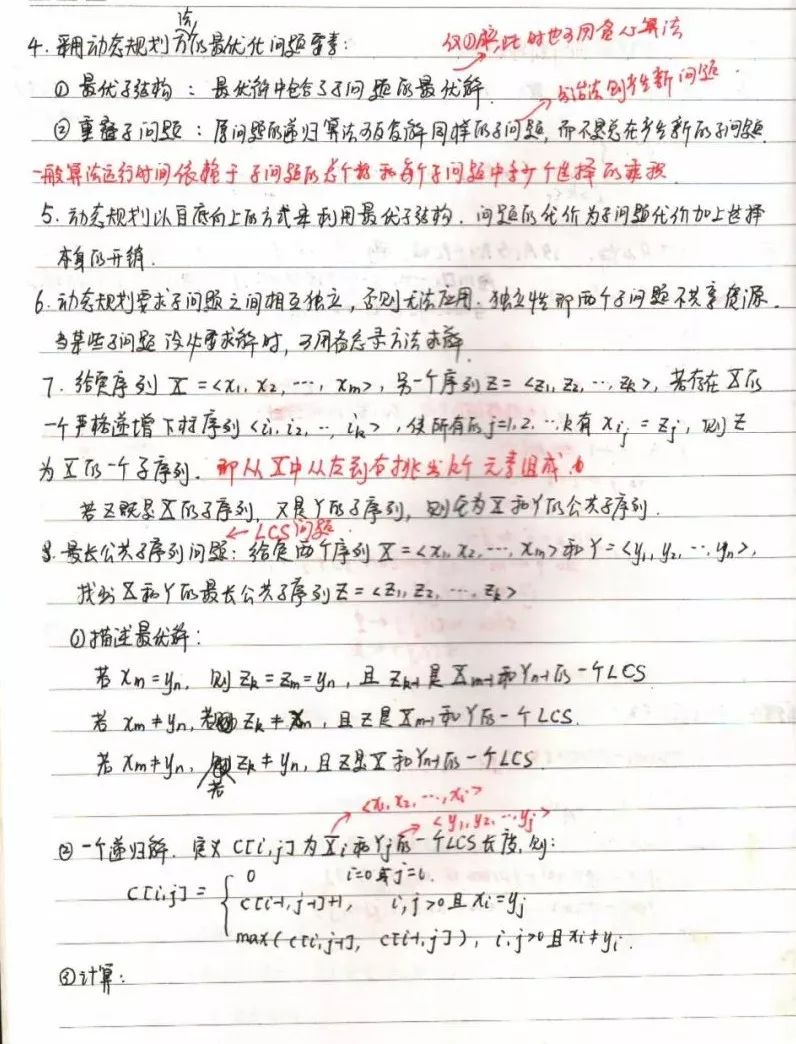 4. 采用动态规划方法的最优化问题要素:
仅①成立此时也可用贪心算法
① 最优子结构 : 最优解中包含了子问题的最优解.
分治法则产生新问题.
② 重叠子问题 : 原问题的递归算法可反复解同样的子问题, 而不是总在产生新的子问题.
一般算法运行时间依赖于 子问题的总个数 和每个子问题中多少个选择 的乘积.
5. 动态规划以自底向上的方式来利用最优子结构. 问题的代价为子问题代价加上选择
本身的开销.
6. 动态规划要求子问题之间相互独立, 否则无法应用. 独立性即两个子问题不共享资源.
当某些子问题没必要求解时, 可用备忘录方法求解
7. 给定序列 X = <x₁, x₂, ⋯, xm>, 另一个序列 Z = <z₁, z₂, ⋯, zk>, 若存在X的
一个严格递增下标序列 <i₁, i₂, ⋯, ik>, 使所有的j=1, 2, ⋯, k有 xij = zj, 则 Z
为X的一个子序列. 即从X中从左到右挑出k个元素组成
若Z既是X的子序列, 又是Y的子序列, 则它为X和Y的公共子序列.
← LCS问题
8. 最长公共子序列问题: 给定两个序列 X = <x₁, x₂, ⋯, xm> 和 Y = <y₁, y₂, ⋯, yn>,
找到X和Y的最长公共子序列 Z = <z₁, z₂, ⋯, zk>
①描述最优解:
若 xm = yn, 则 zk = zm = yn, 且 Zk-1 是 Xm-1 和 Yn-1 的一个LCS
若 xm ≠ yn, 若 zk ≠ xm, 且 Z是 Xm-1 和 Y的一个LCS.
若 xm ≠ yn, 若 zk ≠ yn, 且 Z是X和Yn-1的一个LCS.
<x₁, x₂, ⋯, xi>
<y₁, y₂, ⋯ yj>
② 一个递归解. 定义 C[i,j] 为 Xi 和 Yj 的一个LCS长度, 则:
C[i,j] = { 0 i=0或j=0.
c[i-1, j-1]+1, i, j>0 且 xi=yj
max(c[i, j-1], c[i-1, j]), i, j>0 且 xi≠yi.
③计算: